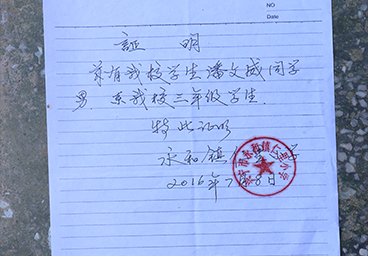 NO
Date
証 明
兹有我校学生潘文威同学
男 系我校三年级学生.
特此证明
永和镇 学
2016年7月8日